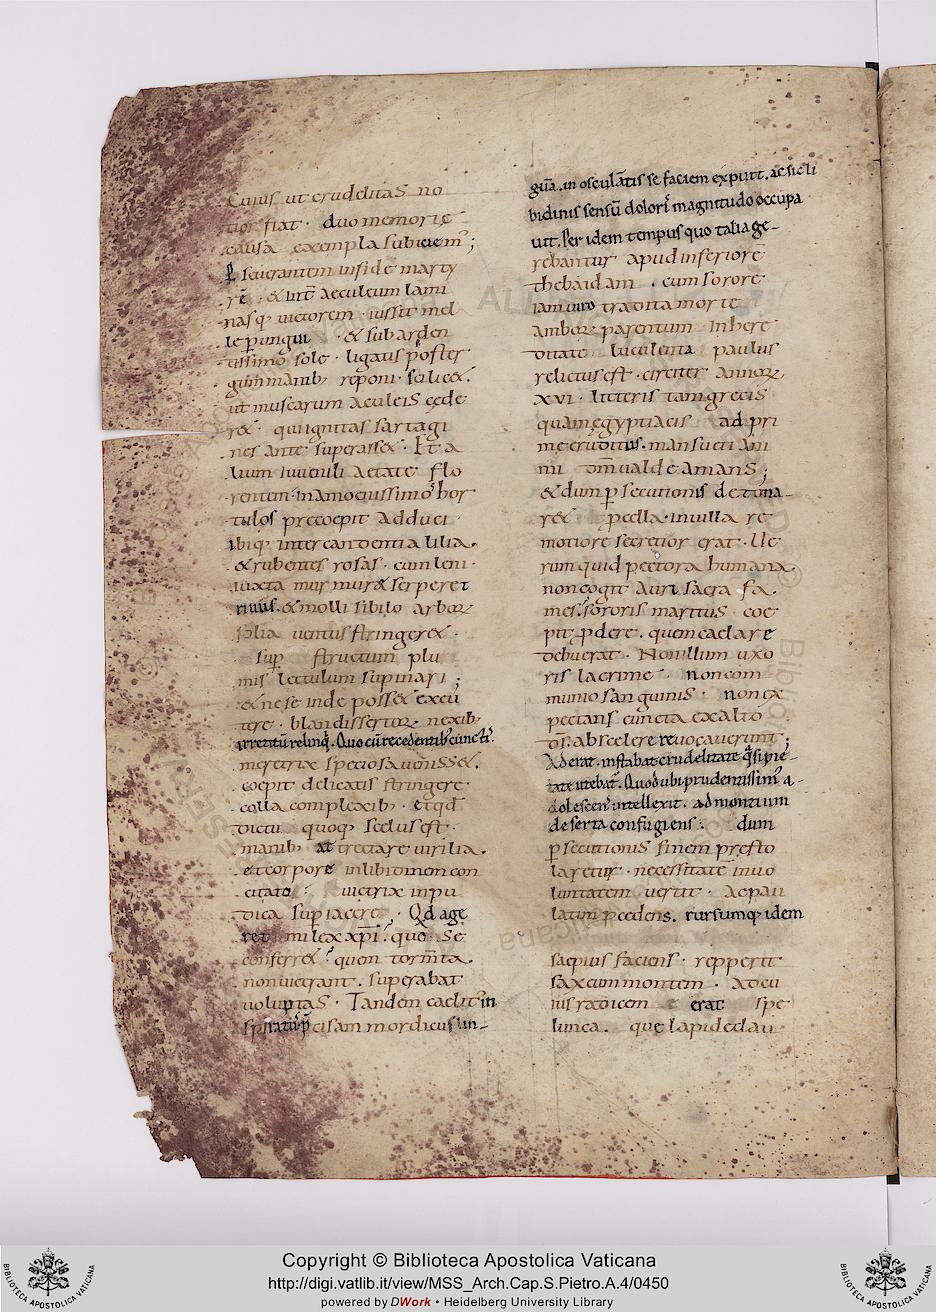 Cuius ut crudelitas no
tior fiat · duo memorie
causa exempla subiciem̅ ;
p̲seuerantem in fide marty
rē · & int̄ aeculeum lami
nasq; uictorem · iussit mel
le p̲ungui · & sub arden
tissimo sole · ligatis poster
gum manib; reponi · scilic&.
ut muscarum aculeis cede
r& · qui ignitas sartagi
nes ante superass& · Et a
lium iuuenili aetate flo
rentem · in amoenissimos hor
tulos precoepit adduci ·
ibiq; inter candentia lilia ·
& rubentes rosas · cum leni ·
iuxta mur mur& serperet
riuus · & molli sibilo arboꝝ
folia uentus stringer& ·
sup̲ structum plu
mis lectulum supinari ;
& ne se inde poss& excu
tere · blandis sertoꝝ nexib;
irretitū relinq̄. Quo cū recedentib; cunctis
meretrix speciosa ueniss& ·
coepit delicatis stringere ·
colla complexib; · et qd̄
dictu quoq; scelus est ·
manib; attrectare uirilia ·
et corpore in libidinem con
citato · uictrix inpu
dica sup̲iacere · Qd̄ age
ret miles xp̄i · quo se
conferr& · quem torm̄ta ·
non uicerant · superabat
uoluptas · Tandem caelit; in
spiratus p̲cisam mordicus lin-
guā. in osculantis se faciem exp̲uit. ac sic li
bidinis sensū doloris magnitudo occupa
uit. Per idem tempus quo talia ge-
rebantur apud inferiorē
thebaidam · cum sorore
iam uiro tradita morte
amboꝝ parentum in here
ditate luculenta paulus
relictus est · circiter annoꝝ
xvi · litteris tam grecis
quam egyptiacis ad pri
me eruditus · mansueti ani
mi dm̄ ualde amans ;
& dum p̲secutionis detona-
r& p̲cella · in uilla re
motiore secretior erat · Ue
rum quid pectora humana ·
non cogit auri sacra fa ·
mes. sororis maritus coe
pit p̲dere · quem caelare
debuerat · Non illum uxo
ris lacrime · non com
munio sanguinis · non ex
pectans cuncta ex alto
ds̄. ab scelere reuocauerunt ;
Aderat · instabat crudelitate q̄si pie-
tate utebat̄. Quod ubi prudentissim; a-
dolescens intellexit. ad montium
deserta confugiens · dum
p̲secutionis finem presto
laretur · necessitatē in uo
luntatem uertit · ac pau
latim p̲cedens. rursumq; idem
saepius faciens · repperit
saxeum montem · ad cu
ius radicem erat spe
lunca · que lapide clau